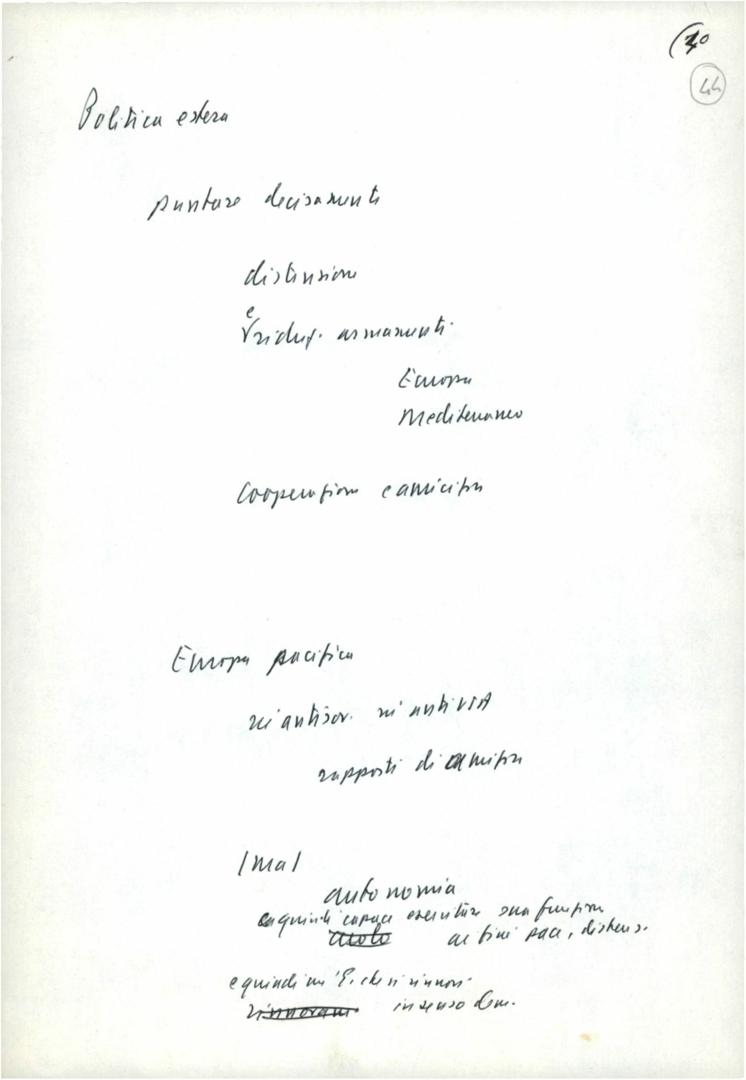 (30
44
Politica estera
puntare decisamente
distensione
e
riduz. armamenti.
Europa
Mediterraneo
Cooperazione e amicizia
Europa pacifica
né antisov. né anti USA
rapporti di amicizia
/ma/
autonomia
e quindi capace esercitare sua funzione
ruolo ai fini pace, distens.
e quindi un' E. che si rinnovi
in senso dem.